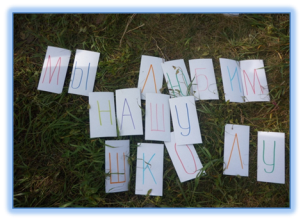 МЫ ЛЮБИМ
НАШУ
ШКОЛУ